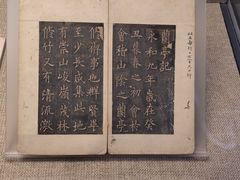 蘭亭記
永和九年歲在癸
丑暮春之初會於
會稽山陰之蘭亭
脩禊事也群賢畢
至少長咸集此地
有崇山峻嶺茂林
脩竹又有清流激